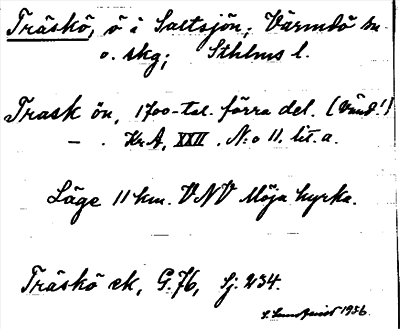 Träskö, ö i Saltsjön; Värmdö sn.
o. skg; Sthlms l.
Trask ön, 1700-tal. förra del. (Vänd!)
— . Kr.A, XXII. N:o 11. lit. a.
Läge 11 km. VNV Möja kyrka.
Träskö ek, G.76, Sj. 234.
1956